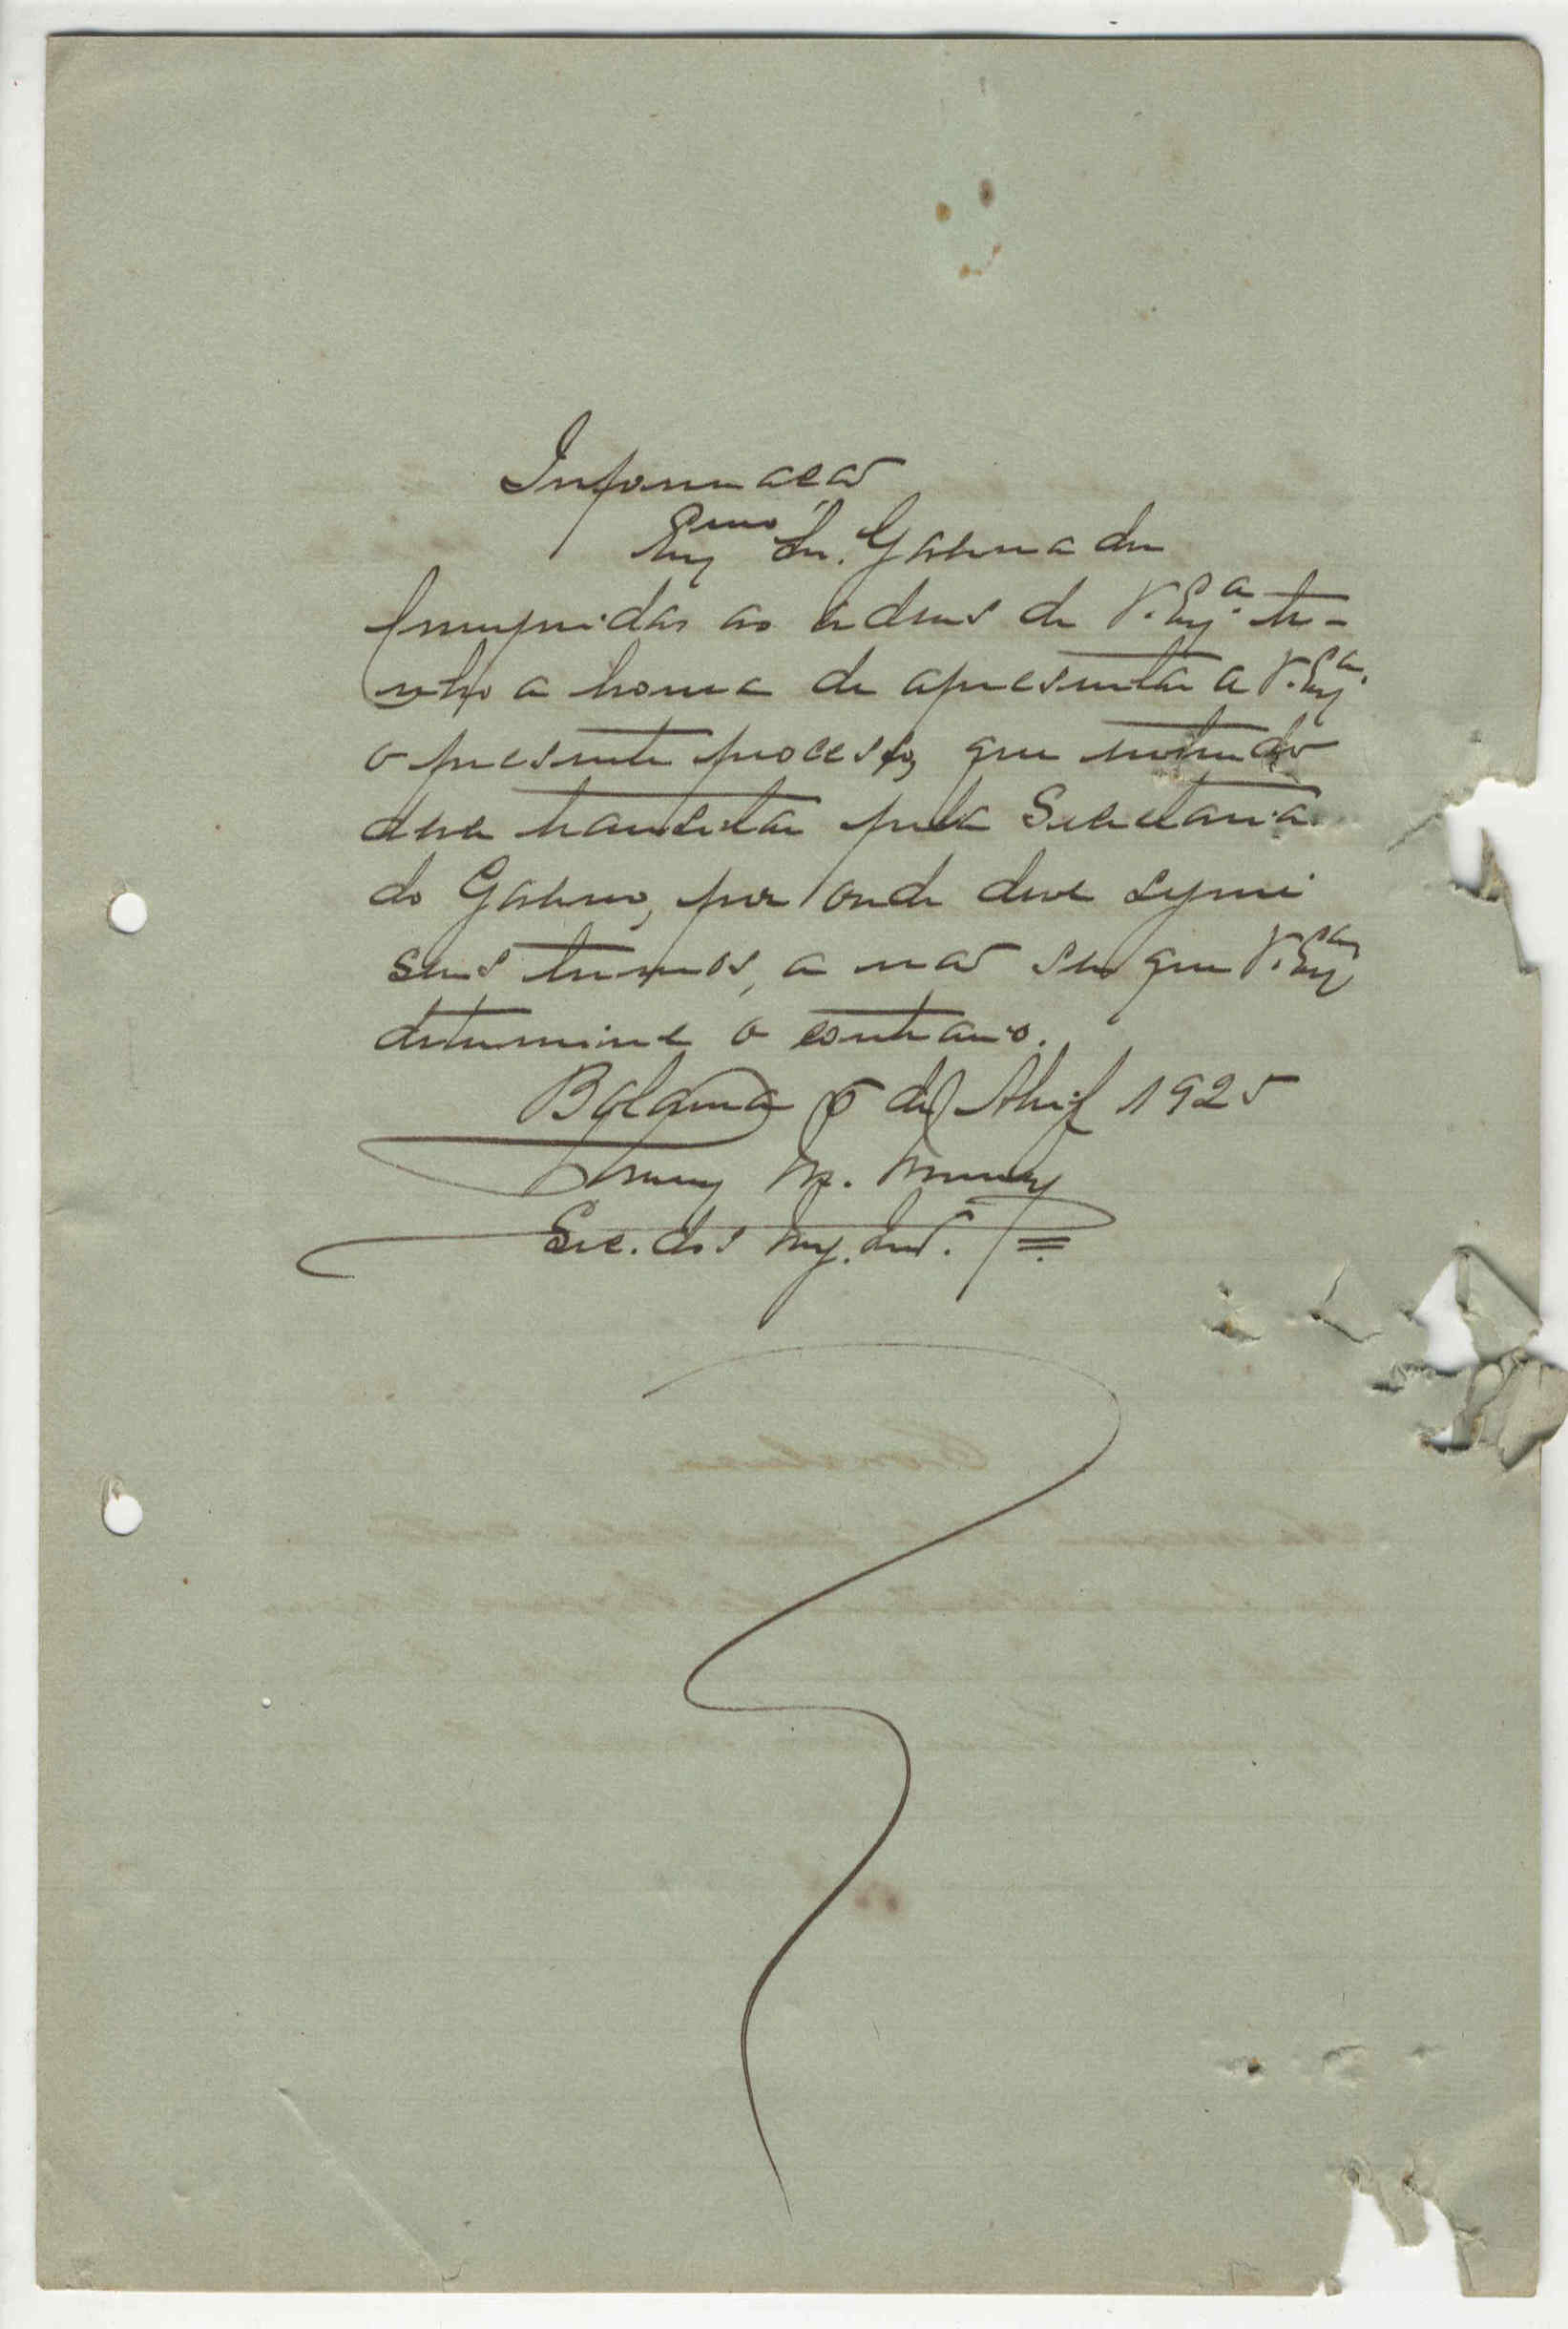 Informação
Exmo Sr. Governador
Cumpridas as ordens de V. Exa te-
nho a honra de apresentar a V. Exa.
o presente processo, que entendo
deve transitar pela Secretaria
do Governo, por onde deve seguir
seus termos, a não ser que V. Exa
determine o contrario.
Bolama 6 de Abril 1925
Sec. dos Neg. Ind.